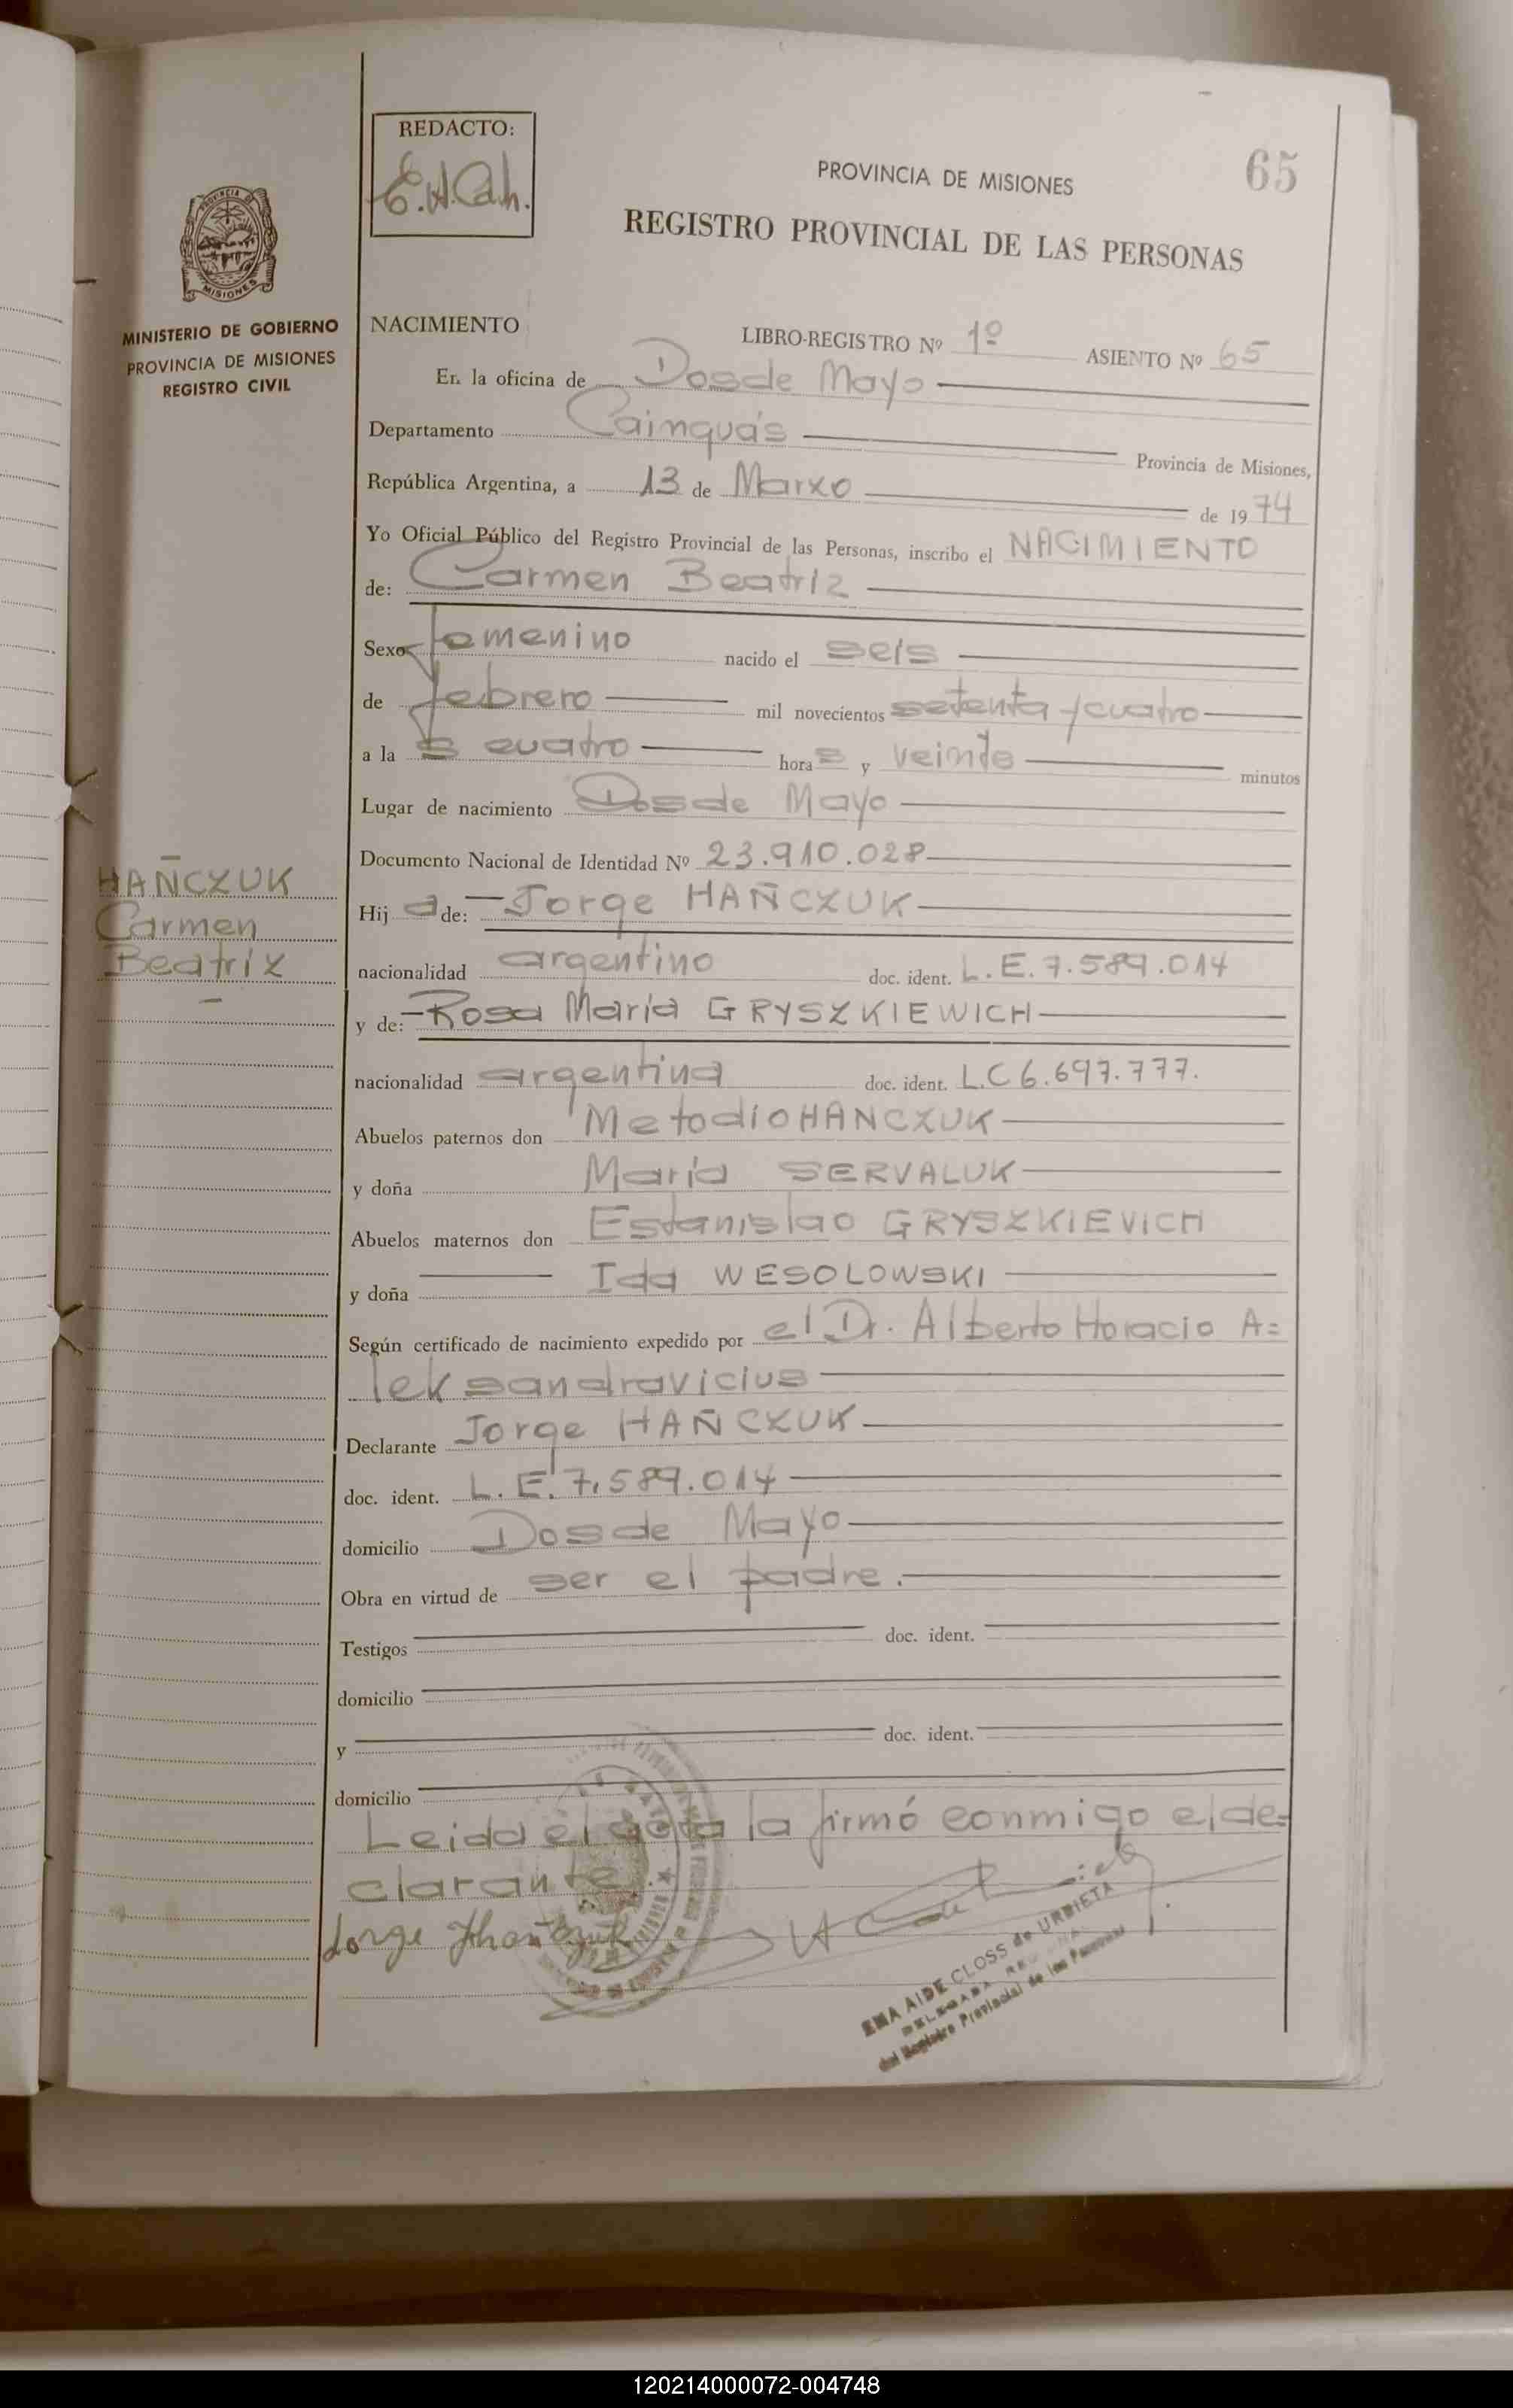 65
REDACTO:
E.A.Cah.
PROVINCIA DE MISIONES
REGISTRO PROVINCIAL DE LAS PERSONAS
PROVINCIA DE
MISIONES
MINISTERIO DE GOBIERNO
PROVINCIA DE MISIONES
REGISTRO CIVIL
NACIMIENTO LIBRO-REGISTRO Nº 1º ASIENTO Nº 65
En la oficina de Dos de Mayo
Departamento Cainguás Provincia de Misiones,
República Argentina, a 13 de Marxo de 1974
Yo Oficial Público del Registro Provincial de las Personas, inscribo el NACIMIENTO
de: Carmen Beatriz
Sexo femenino nacido el seis
de febrero mil novecientos setenta y cuatro
a la s cuatro hora s y veinte minutos
Lugar de nacimiento Dos de Mayo
Documento Nacional de Identidad Nº 23.910.028
HAÑCZUK
Carmen
Beatriz
Hij a de: Jorge HAÑCZUK
nacionalidad argentino doc. ident. L.E. 7.589.014
y de: Rosa María GRYSZKIEWICH
nacionalidad argentina doc. ident. L.C 6.697.777.
Abuelos paternos don Metodio HANCZUK
y doña María SERVALUK
Abuelos maternos don Estanislao GRYSZKIEVICH
y doña Ida WESOLOWSKI
Según certificado de nacimiento expedido por el Dr. Alberto Horacio A=
leksandravicius
Declarante Jorge HAÑCZUK
doc. ident. L.E. 7.589.014
domicilio Dos de Mayo
Obra en virtud de ser el padre.
Testigos doc. ident.
domicilio
y doc. ident.
domicilio
Leida el acta la firmó conmigo el de=
clarante.
Jorge Hañczuk
EMA AIDE CLOSS de URDIETA
DELEGADA
del Registro Provincial de las Personas
120214000072-004748